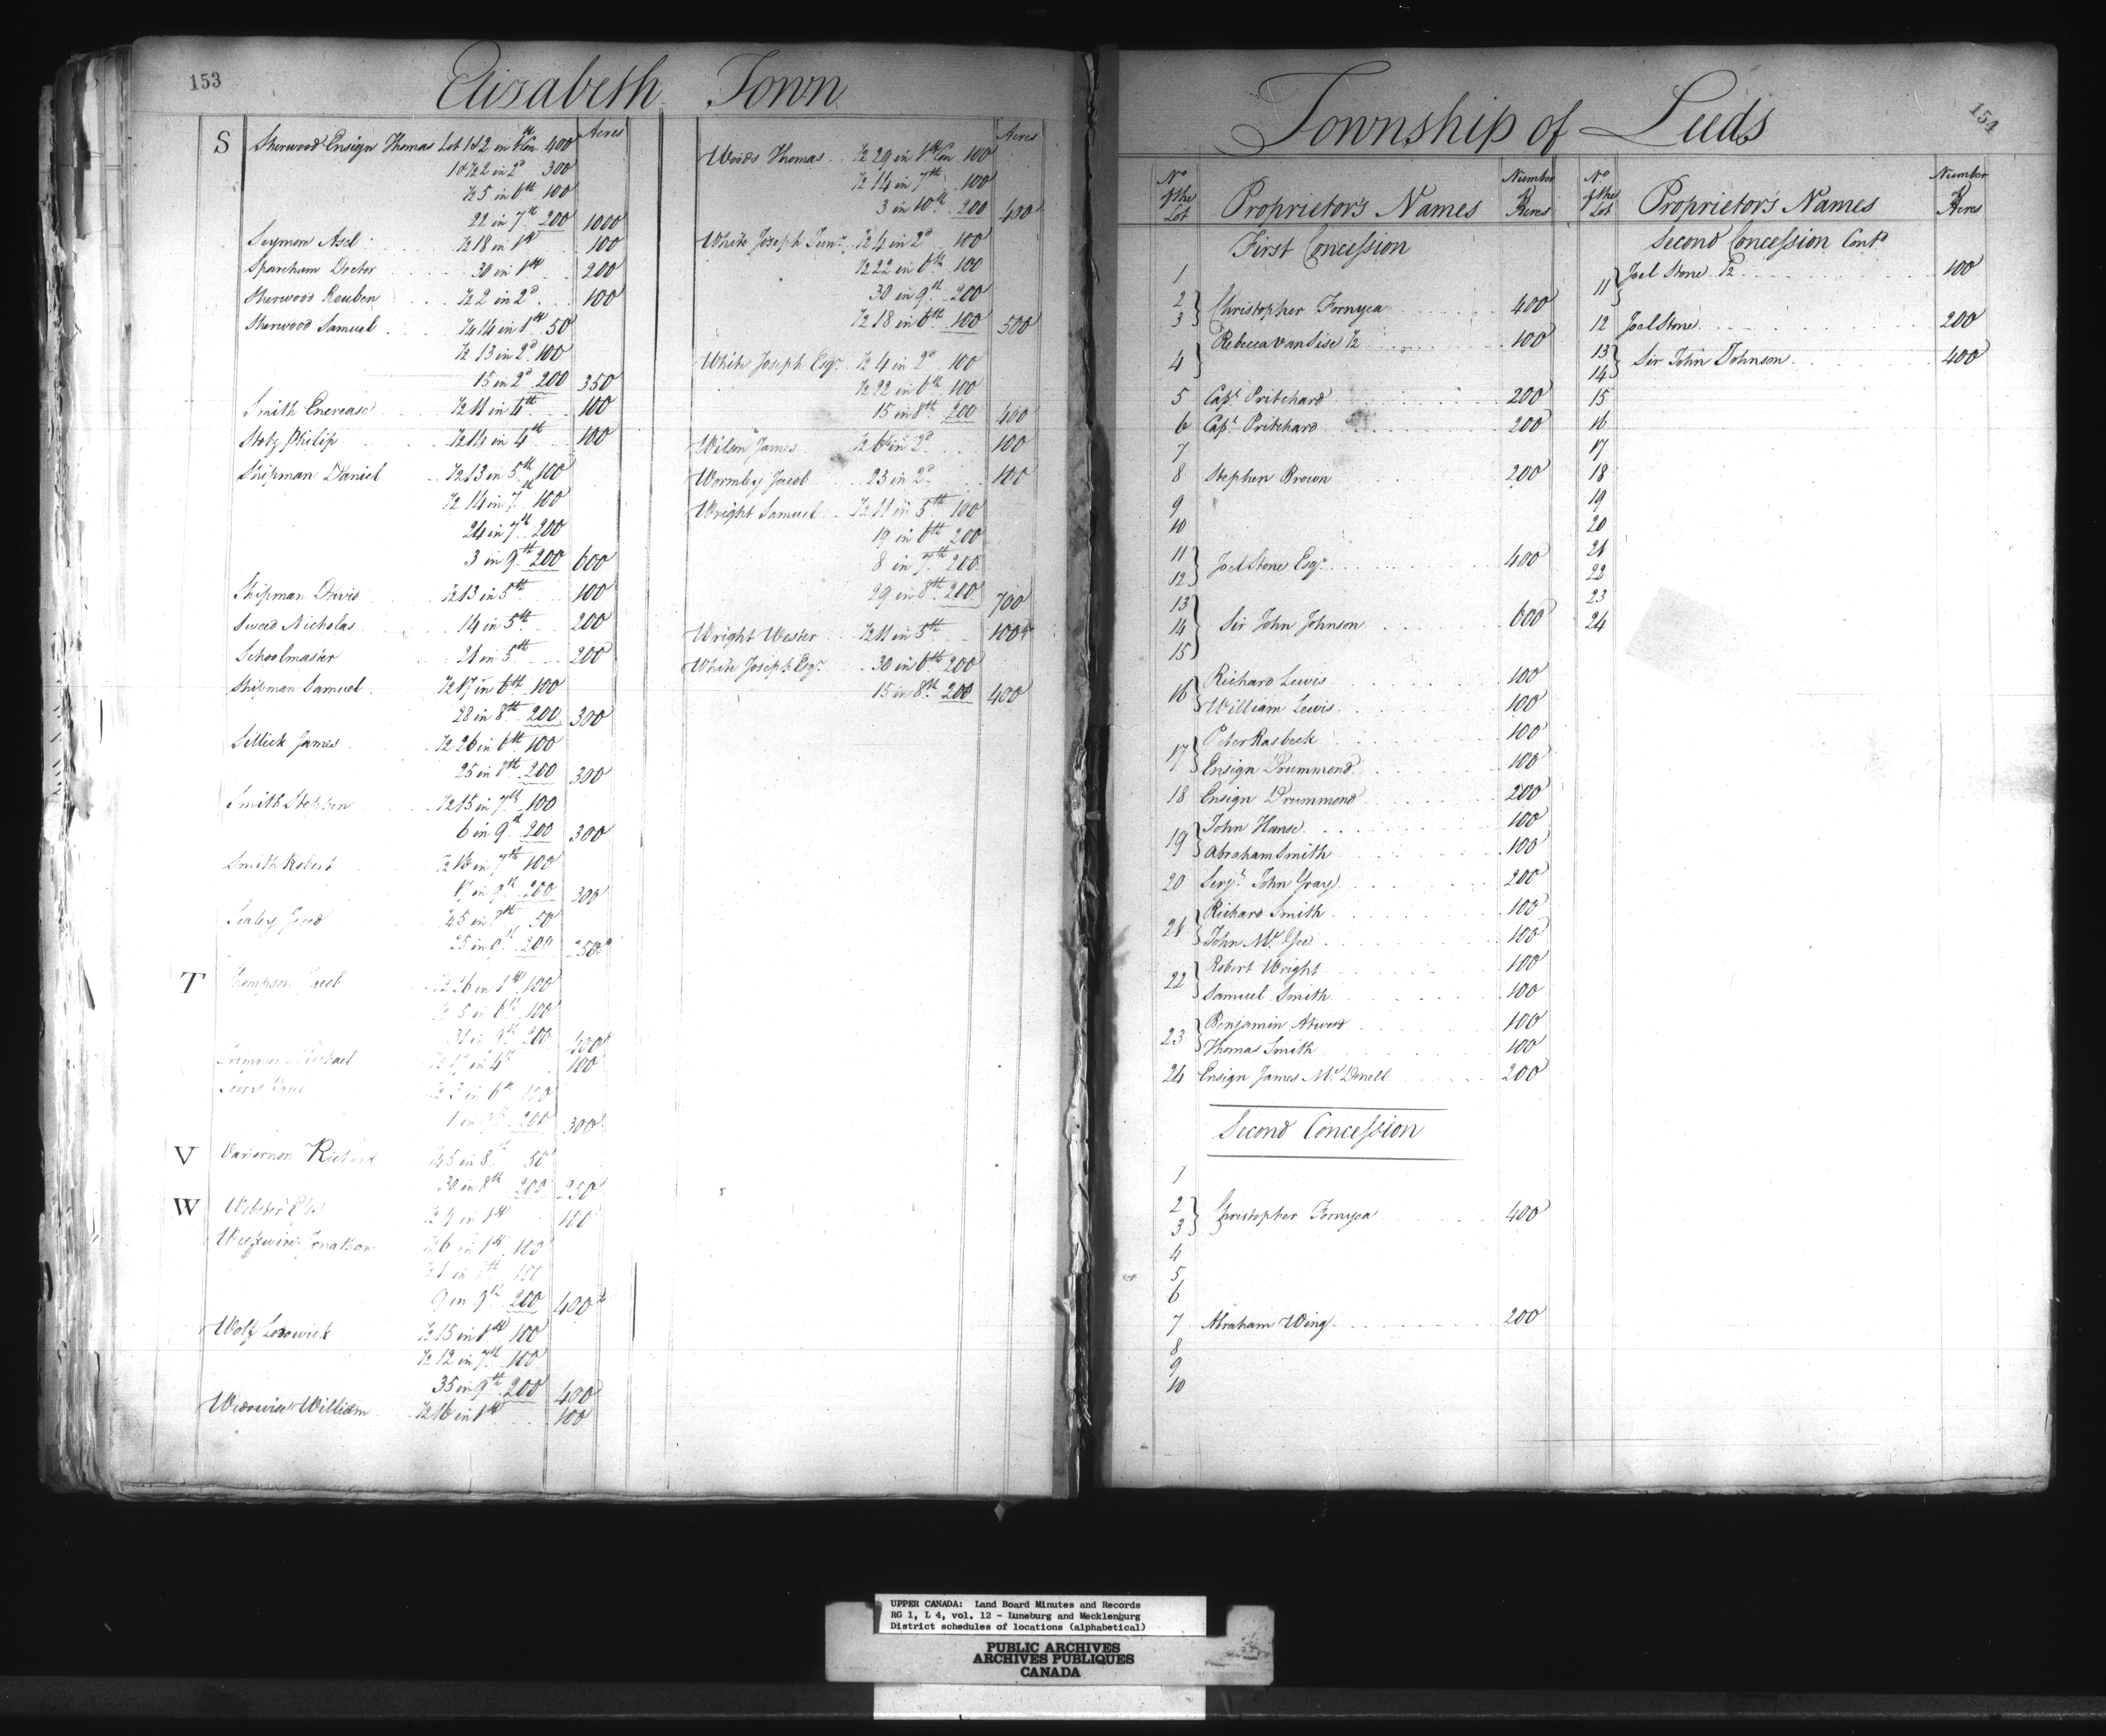 153
Elizabeth Town
Acres
S Sherwood Ensign Thomas Lot 1 & 2 in 1st Con 400
1 & ½ 2 in 2d 300
½ 5 in 6th 100
22 in 7th 200 1000
Seymon Asel ½ 18 in 1st 100
Sparcham Doctor 30 in 1st 200
Sherwood Reuben ½ 2 in 2d 100
Sherwood Samuel ¼ 14 in 1st 50
½ 13 in 2d 100
15 in 2d 200 350
Smith Enerease ½ 11 in 4th 100
Stotz Philip ½ 14 in 4th 100
Shipman Daniel ½ 13 in 5th 100
½ 14 in 7th 100
24 in 7th 200
3 in 9th 200 600
Shipman David ½ 13 in 5th 100
Sweed Nicholas 14 in 5th 200
Schoolmaster 21 in 5th 200
Shipman Samuel ½ 17 in 6th 100
28 in 8th 200 300
Sellick James ½ 26 in 6th 100
25 in 8th 200 300
Smith Stephen ½ 15 in 7th 100
6 in 9th 200 300
Smith Robert ½ 16 in 7th 100
17 in 9th 200 300
Sealey ¼ 5 in 8th 50
25 in 200 250
T Thompson Jacob ½ 26 in 1st 100
½ 5 in 6th 100
31 in 9th 200 400
Michael ½ 17 in 4th 100
½ 2 in 6th 100
1 in 200 300
V Richard ¼ 5 in 8th 50
30 in 8th 200 250
W Webster ½ 4 in 1st 100
Jonathan ½ 6 in 1st 100
100
9 in 9th 200 400
Wolf Lodowick ½ 15 in 1st 100
½ 12 in 7th 100
35 in 9th 200 400
William ½ 16 in 1st 100
Acres
Woods Thomas ½ 29 in 1st Con 100
½ 14 in 7th 100
3 in 10th 200 400
White Joseph Junr ½ 4 in 2d 100
½ 22 in 6th 100
30 in 9th 200
½ 18 in 6th 100 500
White Joseph Esqr ½ 4 in 2d 100
½ 22 in 6th 100
15 in 8th 200 400
Wilson James ½ 6 in 2d 100
Wormley Jacob 23 in 2d 100
Wright Samuel ½ 11 in 5th 100
19 in 6th 200
8 in 7th 200
29 in 8th 200 700
Wright Wester ½ 11 in 5th 100
White Joseph Esqr 30 in 6th 200
15 in 8th 200 400
154
Township of Leeds
No of the Lot Proprietor's Names Number of Acres
First Concession
1
2
3 } Christopher Fornyea 400
4 } Rebecca VanSise ½ 100
5 Capt Pritchard 200
6 Capt Pritchard 200
7
8 Stephen Brown 200
9
10
11
12 } Joel Stone Esqr 400
13
14 Sir John Johnson 600
15 }
16 } Richard Lewis 100
William Lewis 100
17 } Peter Rasbeck 100
Ensign Drummond 100
18 Ensign Drummond 200
19 } John Hanse 100
Abraham Smith 100
20 Serjt John Gray 200
21 } Richard Smith 100
John Mc Gee 100
22 } Robert Wright 100
Samuel Smith 100
23 } Benjamin Atwood 100
Thomas Smith 100
24 Ensign James Mc Donell 200
Second Concession
1
2
3 } Christopher Fornyea 400
4
5
6
7 Abraham Wing 200
8
9
10
No of the Lot Proprietor's Names Number of Acres
Second Concession Contd
11 } Joel Stone ½ 100
12 Joel Stone 200
13
14 } Sir John Johnson 400
15
16
17
18
19
20
21
22
23
24
UPPER CANADA: Land Board Minutes and Records
RG 1, L 4, vol. 12 - Luneburg and Mecklenburg
District schedules of locations (alphabetical)
PUBLIC ARCHIVES
ARCHIVES PUBLIQUES
CANADA